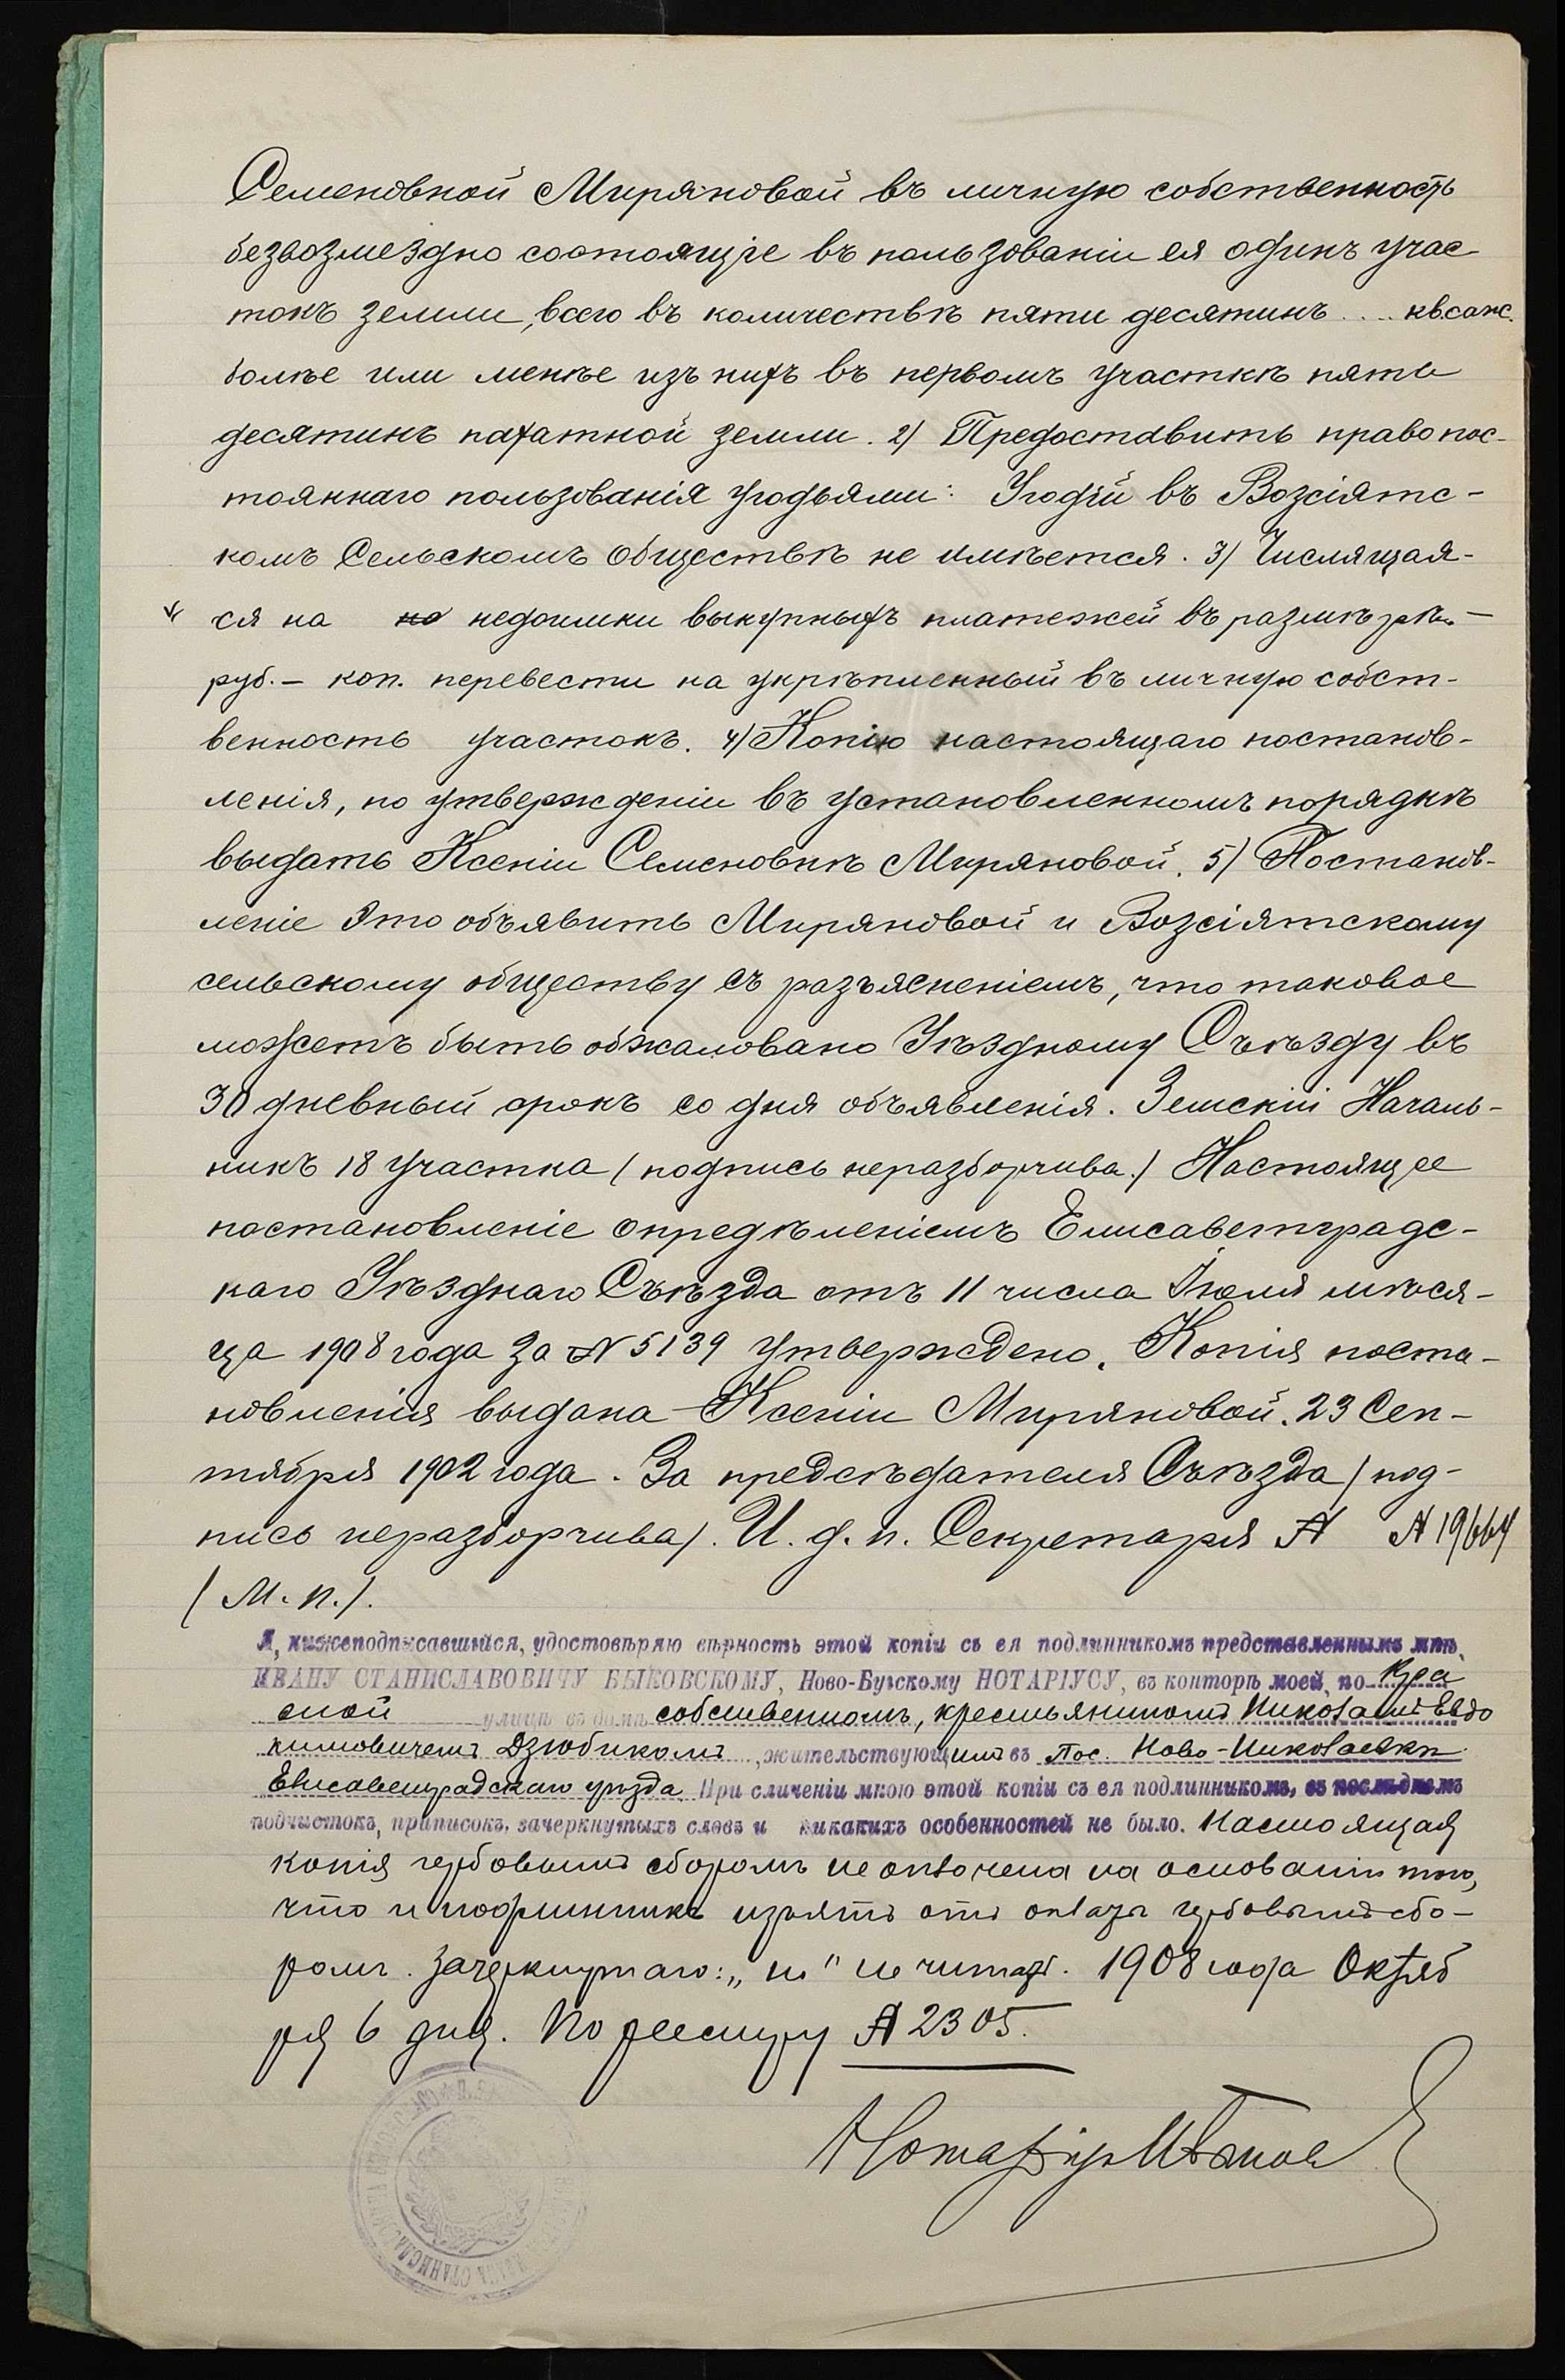 Семеновной Миряновой въ личную собственность
безвозмездно состоящіе въ пользованіи ея одинъ учас-
токъ земли, всего въ количествѣ пяти десятинъ .... кв.саж.
болѣе или менѣе изъ нихъ въ первомъ участкѣ пять
десятинъ пахатной земли. 2) Предоставить право пос-
тояннаго пользованія угодьями: Угодій въ Возсіятс-
комъ Сельскомъ Обществѣ не имѣется. 3) Числящая-
ся на но недоимки выкупныхъ платежей въ размѣрѣ —
руб. — коп. перевести на укрѣпленный въ личную собст-
венность участокъ. 4) Копію настоящаго постанов-
ленія, по утвержденіи въ установленномъ порядкѣ
выдать Ксеніи Семеновнѣ Миряновой. 5) Постанов-
леніе это объявить Миряновой и Возсіятскому
сельскому обществу съ разъясненіемъ, что таковое
можетъ быть обжаловано Уѣздному Съѣзду въ
30 дневный срокъ со дня объявленія. Земскій Началь-
никъ 18 участка (подпись неразборчива.) Настоящее
постановленіе опредѣленіемъ Елисаветградс-
каго Уѣзднаго Съѣзда отъ 11 числа Іюля мѣся-
ца 1908 года за № 5139 утверждено. Копія поста-
новленія выдана Ксеніи Миряновой. 23 Сен-
тября 1902 года. За предсѣдателя Съѣзда (под-
пись неразборчива). И. д. п. Секретаря № № 19664
(М. п.).
Я, нижеподписавшійся, удостовѣряю вѣрность этой копіи съ ея подлинникомъ представленнымъ мнѣ,
ИВАНУ СТАНИСЛАВОВИЧУ БЫКОВСКОМУ, Ново-Бугскому НОТАРІУСУ, въ конторѣ моей, по Кра
сной улицѣ въ домѣ собственномъ, крестьяниномъ Николаемъ Евдо
кимовичемъ Дзюбикомъ, жительствующимъ въ Пос. Ново-Николаевкѣ
Елисаветградскаго уѣзда. При сличеніи мною этой копіи съ ея подлинникомъ, въ послѣднемъ
подчистокъ, приписокъ, зачеркнутыхъ словъ и никакихъ особенностей не было. Настоящая
копія гербовымъ сборомъ не оплочена на основаніи того,
что и подлинникъ изъятъ отъ оплаты гербовымъ сбо-
ромъ. Зачеркнутаго: „но" не читать. 1908 года Октяб
ря 6 дня. По реестру № 2305.
Нотаріусъ